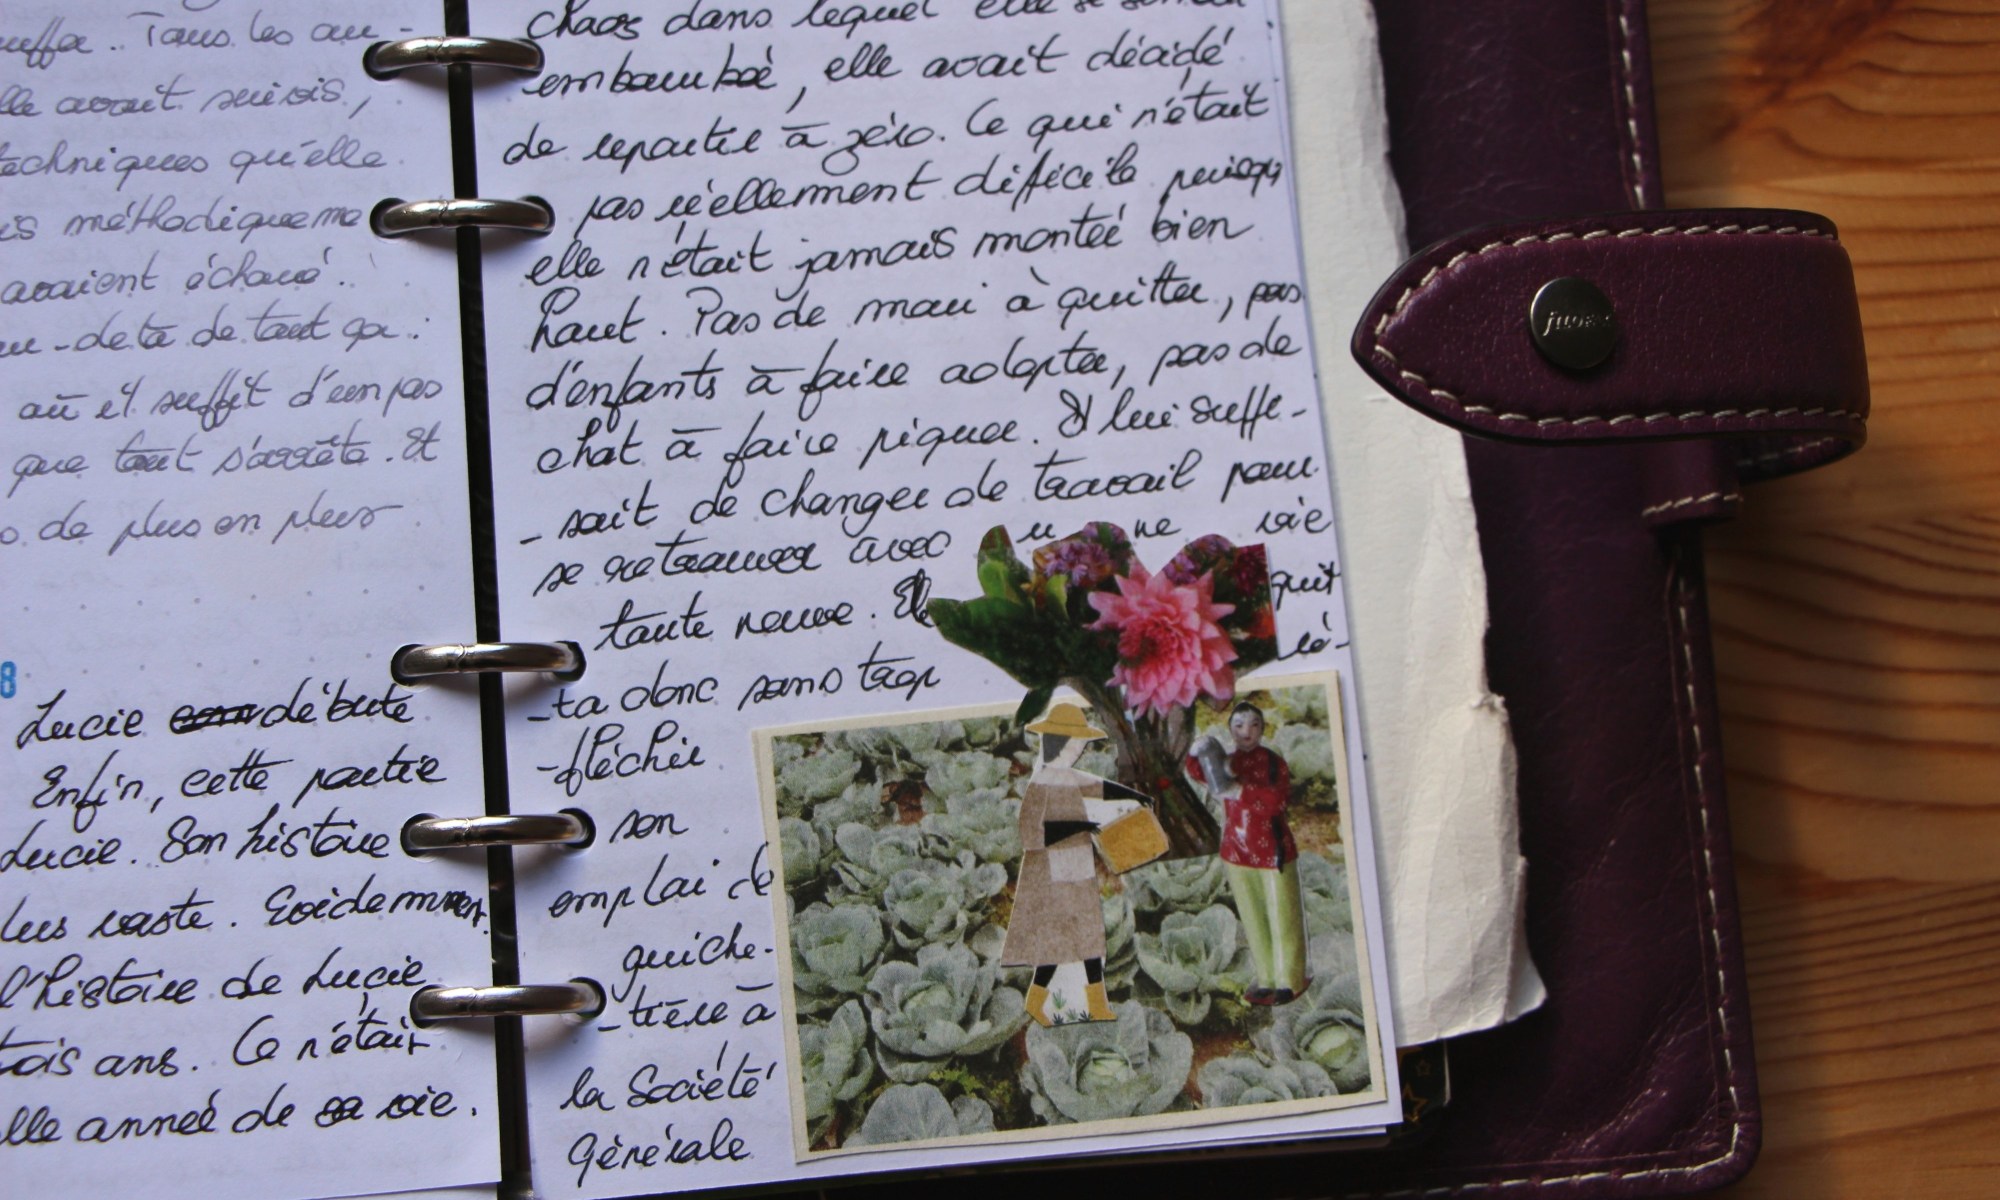 Tous les au-
elle avait suivis,
techniques qu'elle
is méthodiqueme
avaient échoué.
au-delà de tout ça :
où il suffit d'un pas
que tout s'arrête. Et
de plus en plus
8
Lucie débute
Enfin, cette partie
Lucie. Son histoire
lus vaste. Evidemment.
l'histoire de Lucie
tois ans. Ce n'était
elle année de sa vie.
chaos dans lequel elle se
embourbé, elle avait décidé
de repartir à zéro. Ce qui n'était
pas réellement difficile puisqu
elle n'était jamais montée bien
haut. Pas de mari à quitter, pas
d'enfants à faire adopter, pas de
chat à faire piquer. Il lui suffi-
-sait de changer de travail pour
se retrouver avec une vie
toute neuve. Elle quit
-ta donc sans trop ré-
-fléchir
son
emploi de
guiche-
-tière à
la Société
Générale
filofax